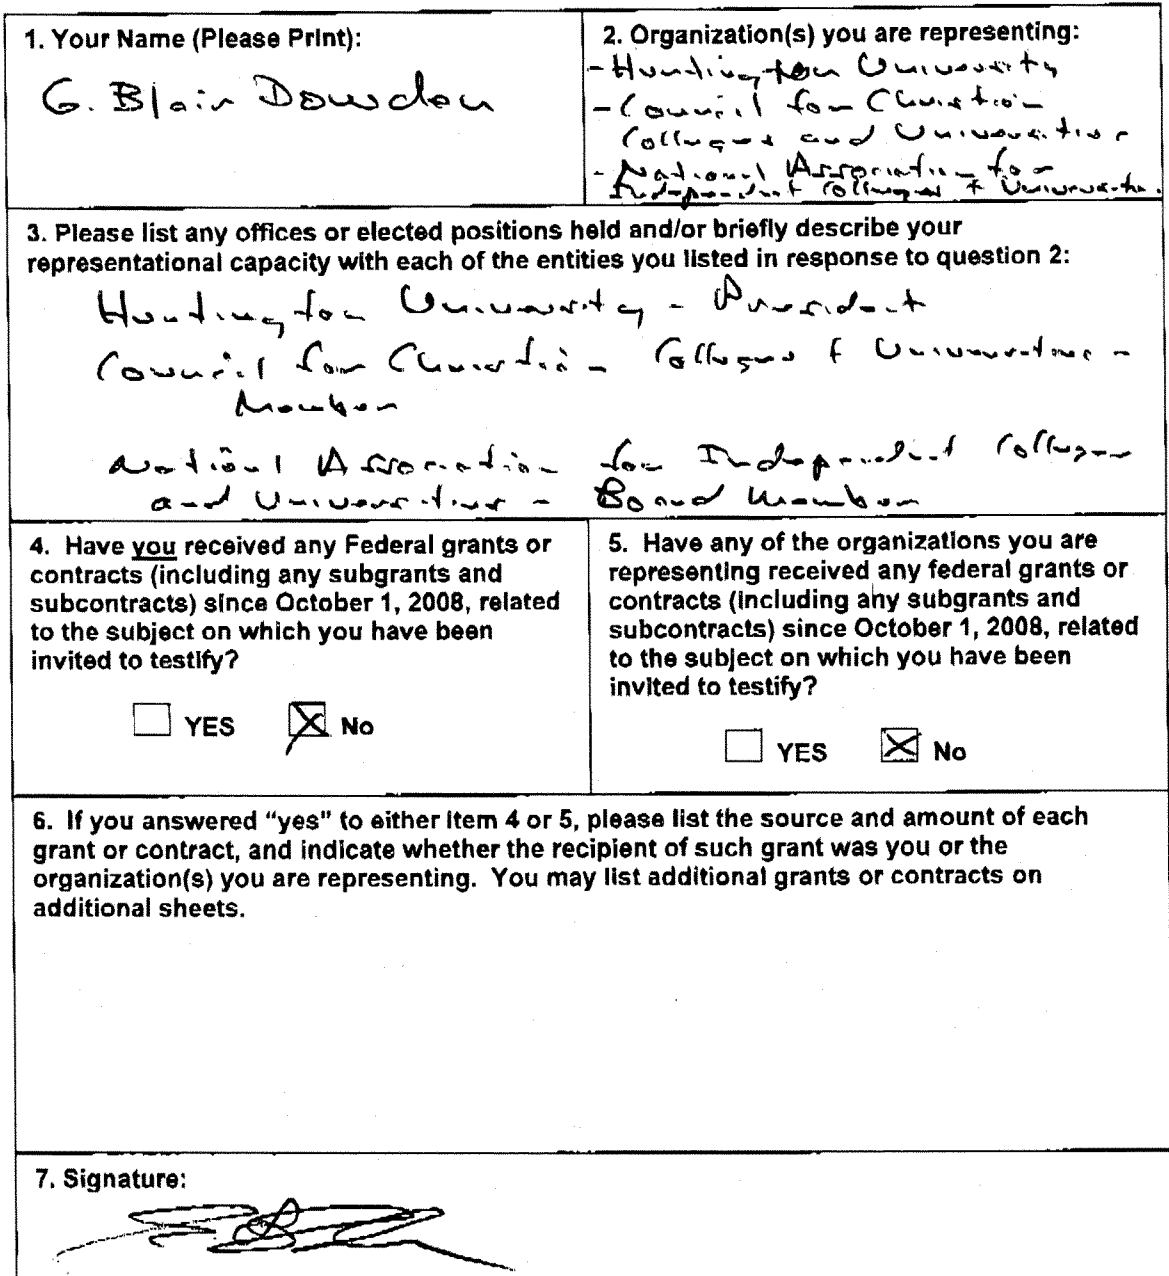 1. Your Name (Please Print):
G. Blair Dowden
2. Organization(s) you are representing:
- Huntington University
- Council for Christian
Colleges and Universities
- National Association for
Independent Colleges + Universities.
3. Please list any offices or elected positions held and/or briefly describe your
representational capacity with each of the entities you listed in response to question 2:
Huntington University - President
Council for Christian Colleges & Universities -
Member
National Association for Independent Colleges
and Universities - Board Member
4. Have you received any Federal grants or
contracts (including any subgrants and
subcontracts) since October 1, 2008, related
to the subject on which you have been
invited to testify?
YES No
5. Have any of the organizations you are
representing received any federal grants or
contracts (including any subgrants and
subcontracts) since October 1, 2008, related
to the subject on which you have been
invited to testify?
YES No
6. If you answered "yes" to either item 4 or 5, please list the source and amount of each
grant or contract, and indicate whether the recipient of such grant was you or the
organization(s) you are representing. You may list additional grants or contracts on
additional sheets.
7. Signature: